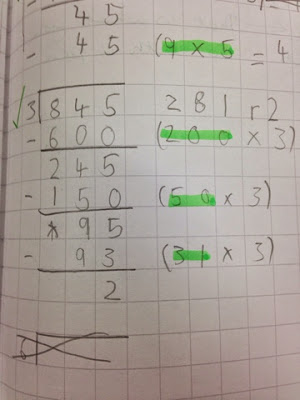 45
- 45 (9 x 5 = 4
✓ 3 845 281 r2
- 600 (200 x 3)
245
- 150 (50 x 3)
* 95
- 93 (31 x 3)
2